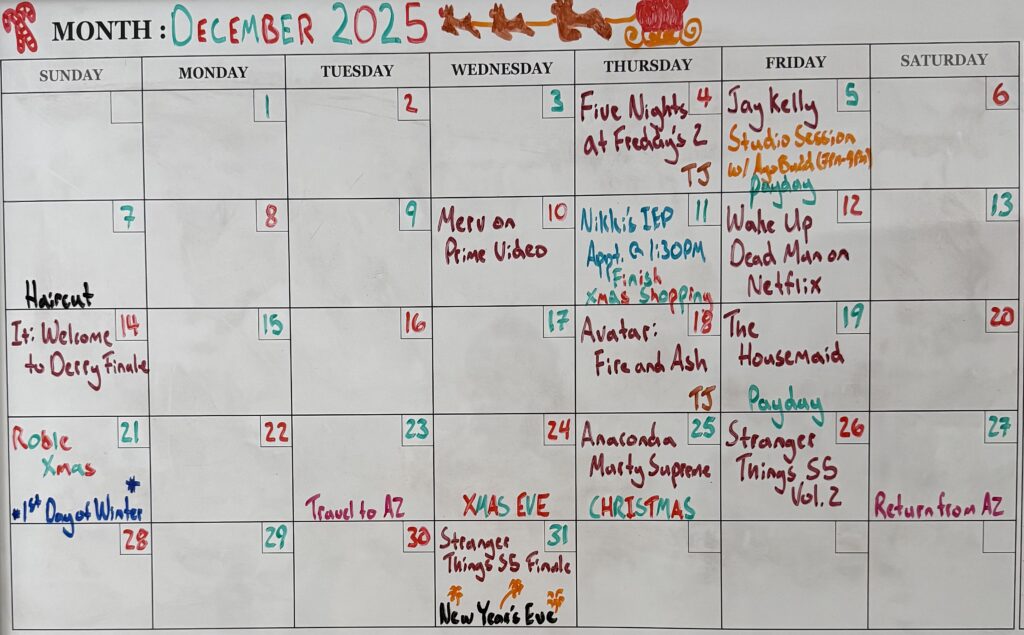 MONTH : DECEMBER 2025
SUNDAY
MONDAY
TUESDAY
WEDNESDAY
THURSDAY
FRIDAY
SATURDAY
1
2
3
4
Five Nights
at Freddy's 2
TJ
5
Jay Kelly
Studio Session
w/ (7PM-9PM)
Payday
6
7
Haircut
8
9
10
Merv on
Prime Video
11
Nikki's IEP
Appt. @ 1:30PM
Finish
Xmas Shopping
12
Wake Up
Dead Man on
Netflix
13
14
It: Welcome
to Derry Finale
15
16
17
18
Avatar:
Fire and Ash
TJ
19
The
Housemaid
Payday
20
21
Roble
Xmas
*1st Day of Winter*
22
23
Travel to AZ
24
XMAS EVE
25
Anaconda
Marty Supreme
CHRISTMAS
26
Stranger
Things S5
Vol. 2
27
Return from AZ
28
29
30
31
Stranger
Things S5 Finale
New Year's Eve